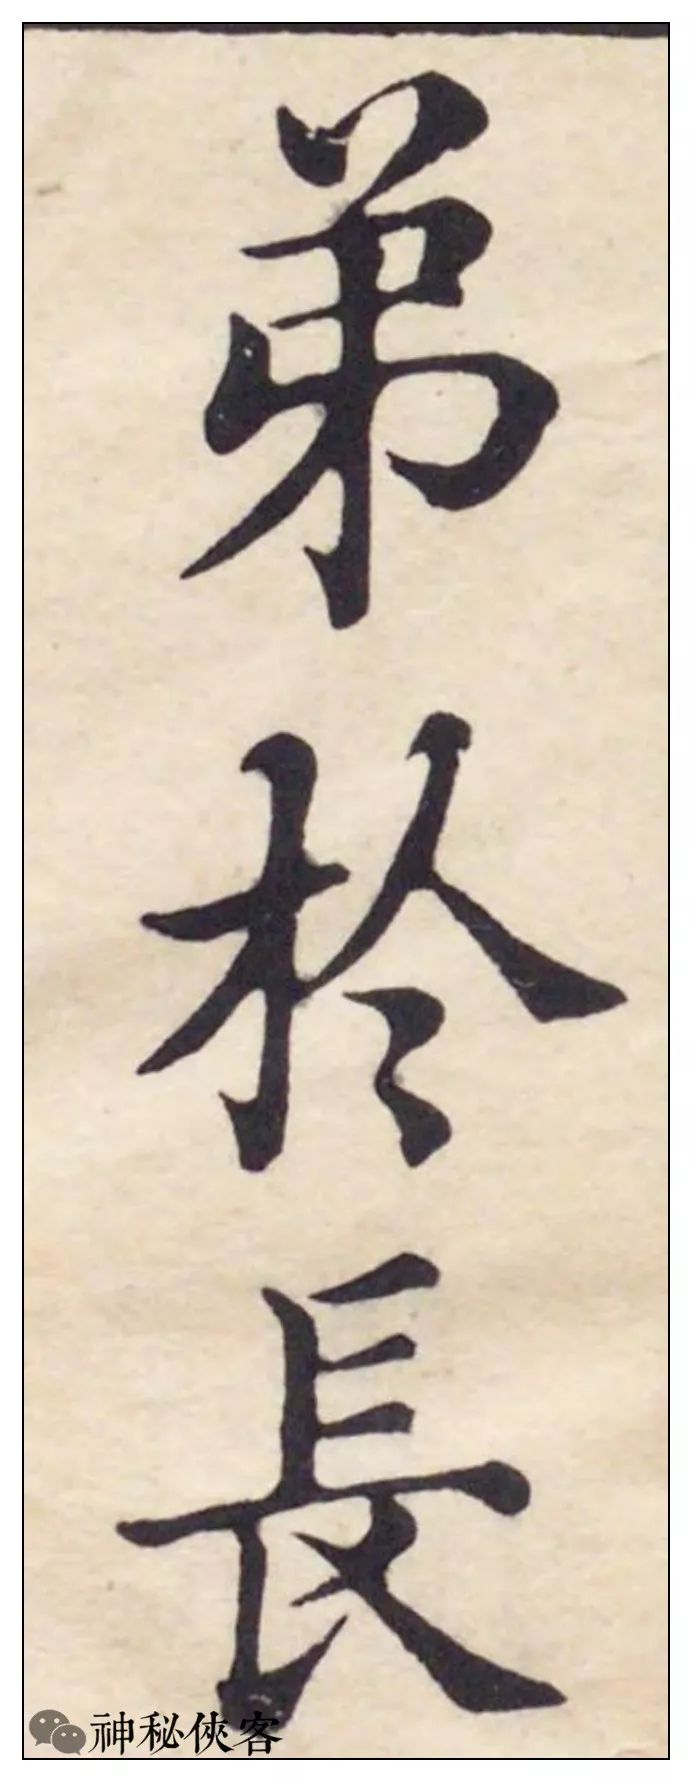 弟於長
神秘俠客